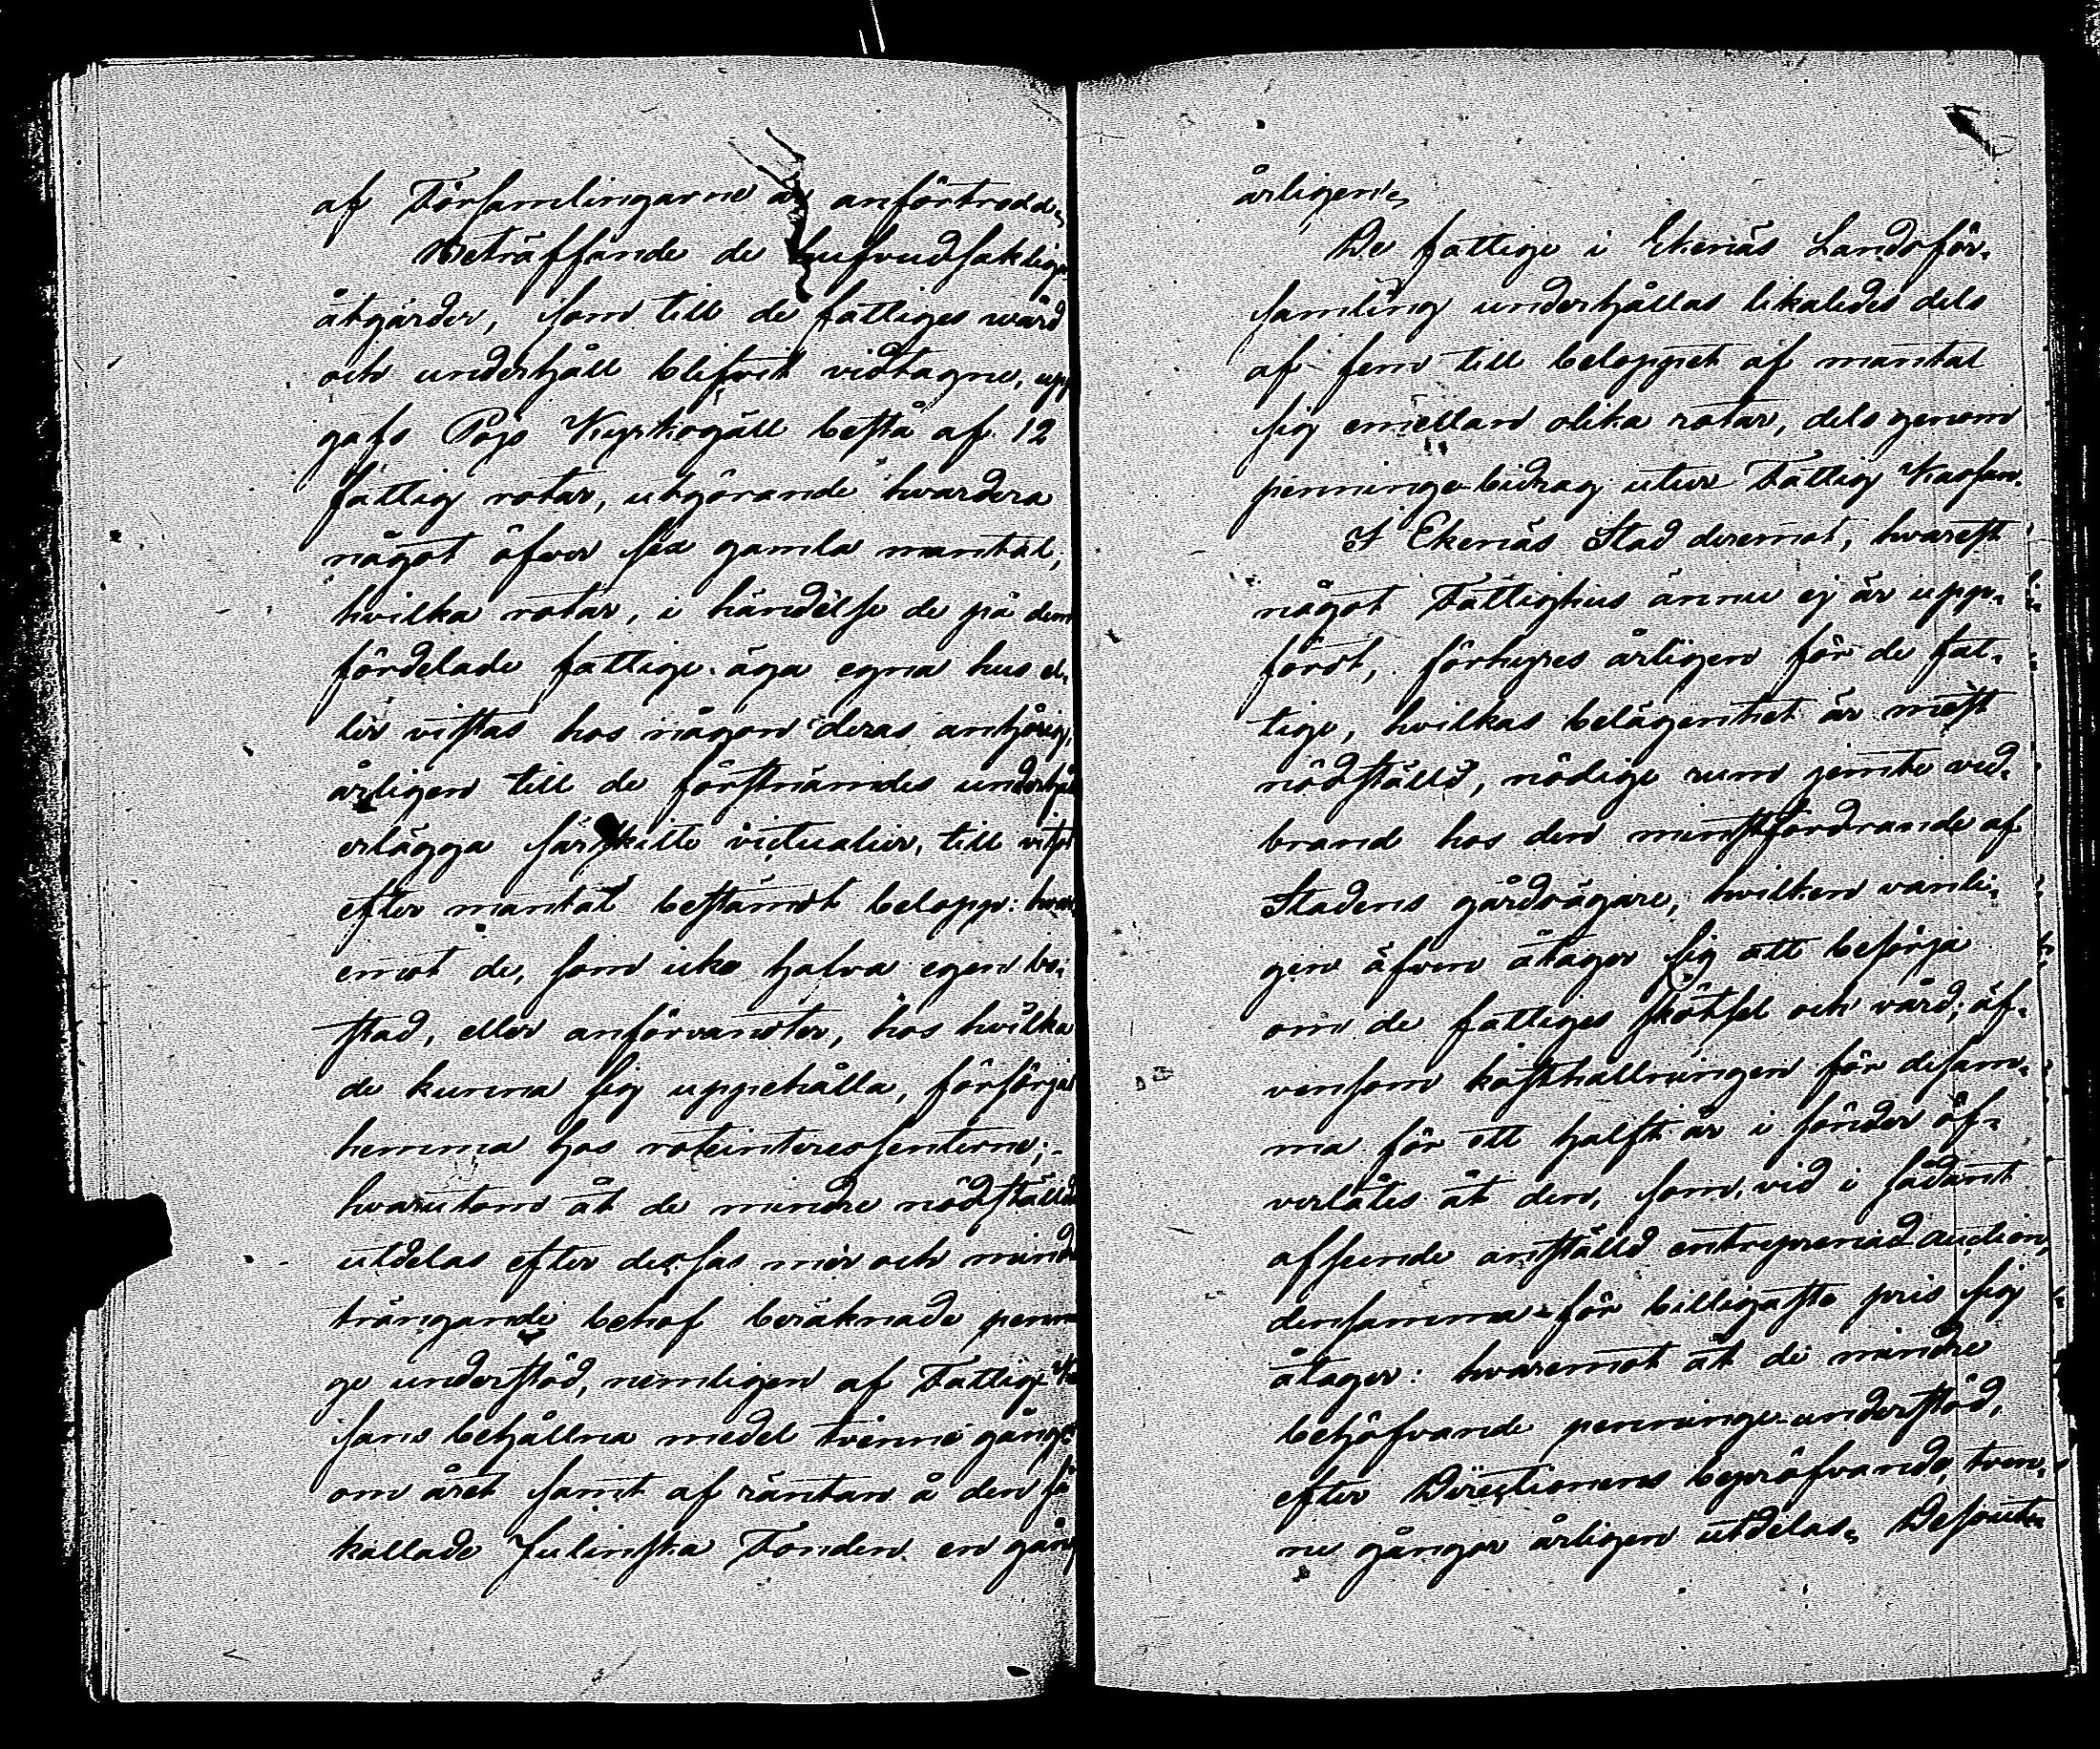 af Församlingarne är anförtrodd.
Beträffande de hufvudsaklige
åtgärder, som till de fattiges wård
och underhåll blifvit vidtagne, upp
gafs Pojo Kyrkogäll bestå af 12
fattig rotar, utgörande hvardera
något öfver sex gamla mantal,
hvilka rotar, i händelse de på dem
fördelade fattige äga egna hus el-
ler vistas hos någon deras anhörig,
årligen till de förstnämdes underhåll
erlägga särskilte victualier, till visst
efter mantal bestämdt belopp: hvar-
emot de, som icke hafva egen bo-
stad, eller anförvandter, hos hvilka
de kunna sig uppehålla, försörjas
hemma hos roteinteressenterne;
hvarutom åt de mindre nödställda
utdelas efter dessas mer och mindre
trängande behof beräknade pennin
ge understöd, nemligen af Fattig Ka
sans behållna medel tvenne gånger
om året samt af räntan å den så
kallade Julinska Fonden en gång
årligen.
De fattige i Ekenäs Landsför-
samling underhållas likaledes dels
af fem till beloppet af mantal
sig emellan olika rotar, dels genom
penninge-bidrag utur Fattig Kassan.
I Ekenäs Stad deremot, hvarest
något Fattighus ännu ej är upp-
fördt, förhyres årligen för de fat-
tige, hvilkas belägenhet är mest
nödställd, nödige rum jemte ved-
brand hos den minstfordrande af
Stadens gårdsägare, hvilken vanli-
gen äfven åtager sig att besörja
om de fattiges skötsel och vård; äf-
vensom kosthållningen för desam-
ma för ett halft år i sönder öf-
verlåtes åt den, som, vid i sådant
afseende anställd entreprenad auction,
densamma för billigaste pris sig
åtager: hvaremot åt de mindre
behöfvande penninge-understöd,
efter Directionens bepröfvande, tven-
ne gånger årligen utdelas. Dessute-